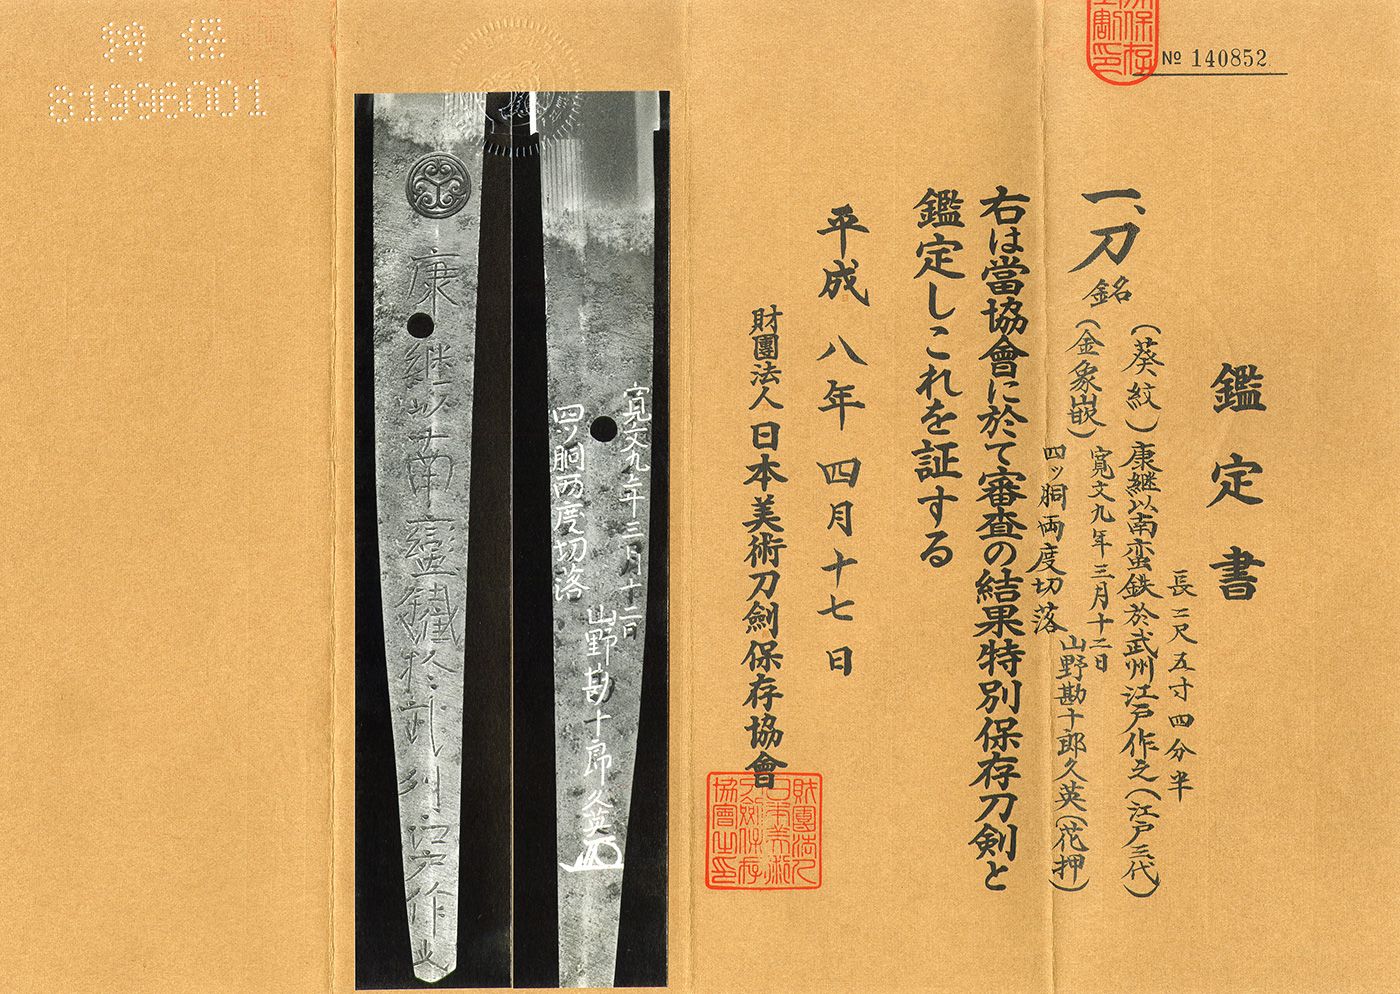 № 140852
鑑定書
一、刀 銘
長二尺五寸四分半
(葵紋)康継以南蛮鉄於武州江戸作之(江戸三代)
(金象嵌)
寛文九年三月十二日
山野勘十郎久英(花押)
四ッ胴両度切落
右は當協會に於て審査の結果特別保存刀剣と
鑑定しこれを証する
平成八年四月十七日
財團法人日本美術刀劍保存協會
財團法人
日本美術
刀劍保存
協會之印
寛文九年三月十二日
山野勘十郎久英
四ツ胴両度切落
康継以南蠻鐵於武州江戸作之
81996001